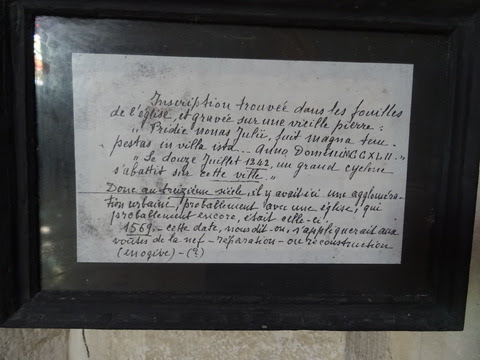 Inscription trouvée dans les fouilles
de l'église, et gravée sur une vieille pierre :
"Pridie nonas Julii, fuit magna tem
pestas in villa ista ... Anno Domini CCXLII."
"Le douze Juillet 1242, un grand cyclone
s'abattit sur cette ville."
Donc au treizième siècle, il y avait ici une aggloméra-
tion urbaine, probablement avec une église ; qui
probablement encore, était celle-ci
1569. - cette date, nous dit-on, s'appliquerait aux
voûtes de la nef - réparation - ou reconstruction
(en ogive) - (?)